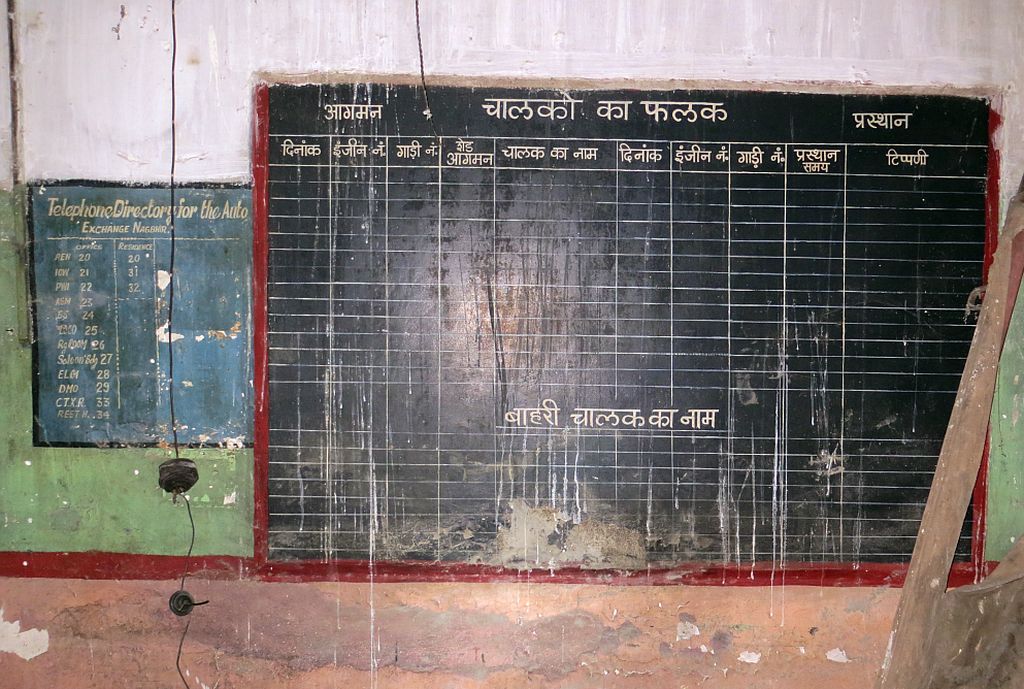 Telephone Directory for the Auto
EXCHANGE NAGBHIR.
OFFICE RESIDENCE
AEN 20 20
IOW 21 31
PWI 22 32
ASM 23
SS 24
LOCO 25
Rg ROOM 26
Saloon Sdg 27
ELCI 28
DMO 29
C.T.X.R. 33
REST H.. 34
आगमन चालको का फलक प्रस्थान
दिनांक इंजीन नं. गाड़ी नं. शेड आगमन चालक का नाम दिनांक इंजीन नं. गाड़ी नं. प्रस्थान समय टिप्पणी
बाहरी चालक का नाम